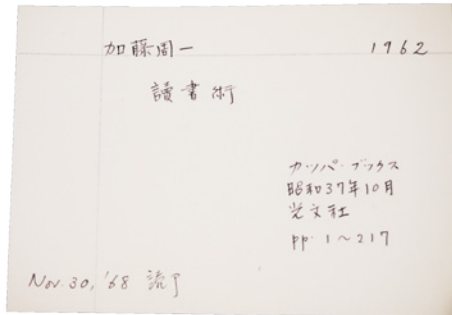 加藤周一 1962
讀書術
カッパ・ブックス
昭和37年10月
光文社
pp. 1～217
Nov. 30, '68 読了